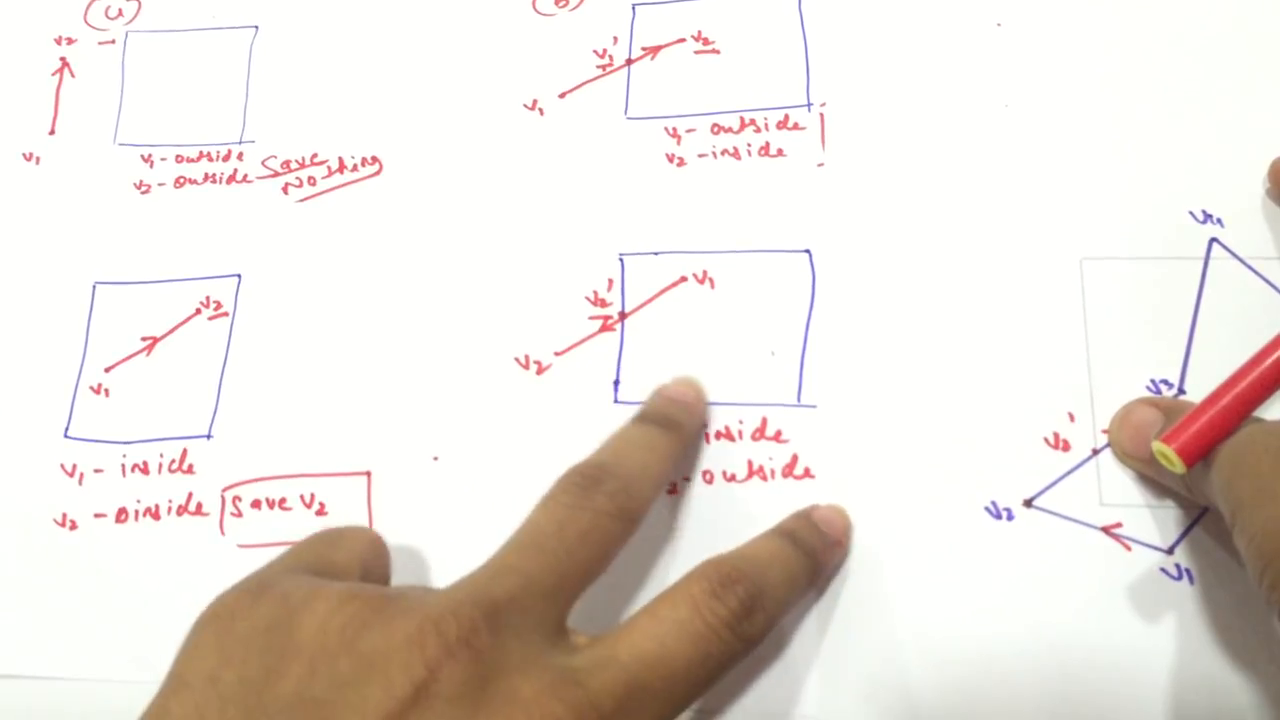 (a)
(b)
v2
v1
v1 - outside
v2 - outside
Save
Nothing
v1'
v2
v1
v1 - outside
v2 - inside
v2
v1
v1 - inside
v2 - inside
Save v2
v2'
v1
v2
inside
outside
v4
v3
v2'
v2
v1